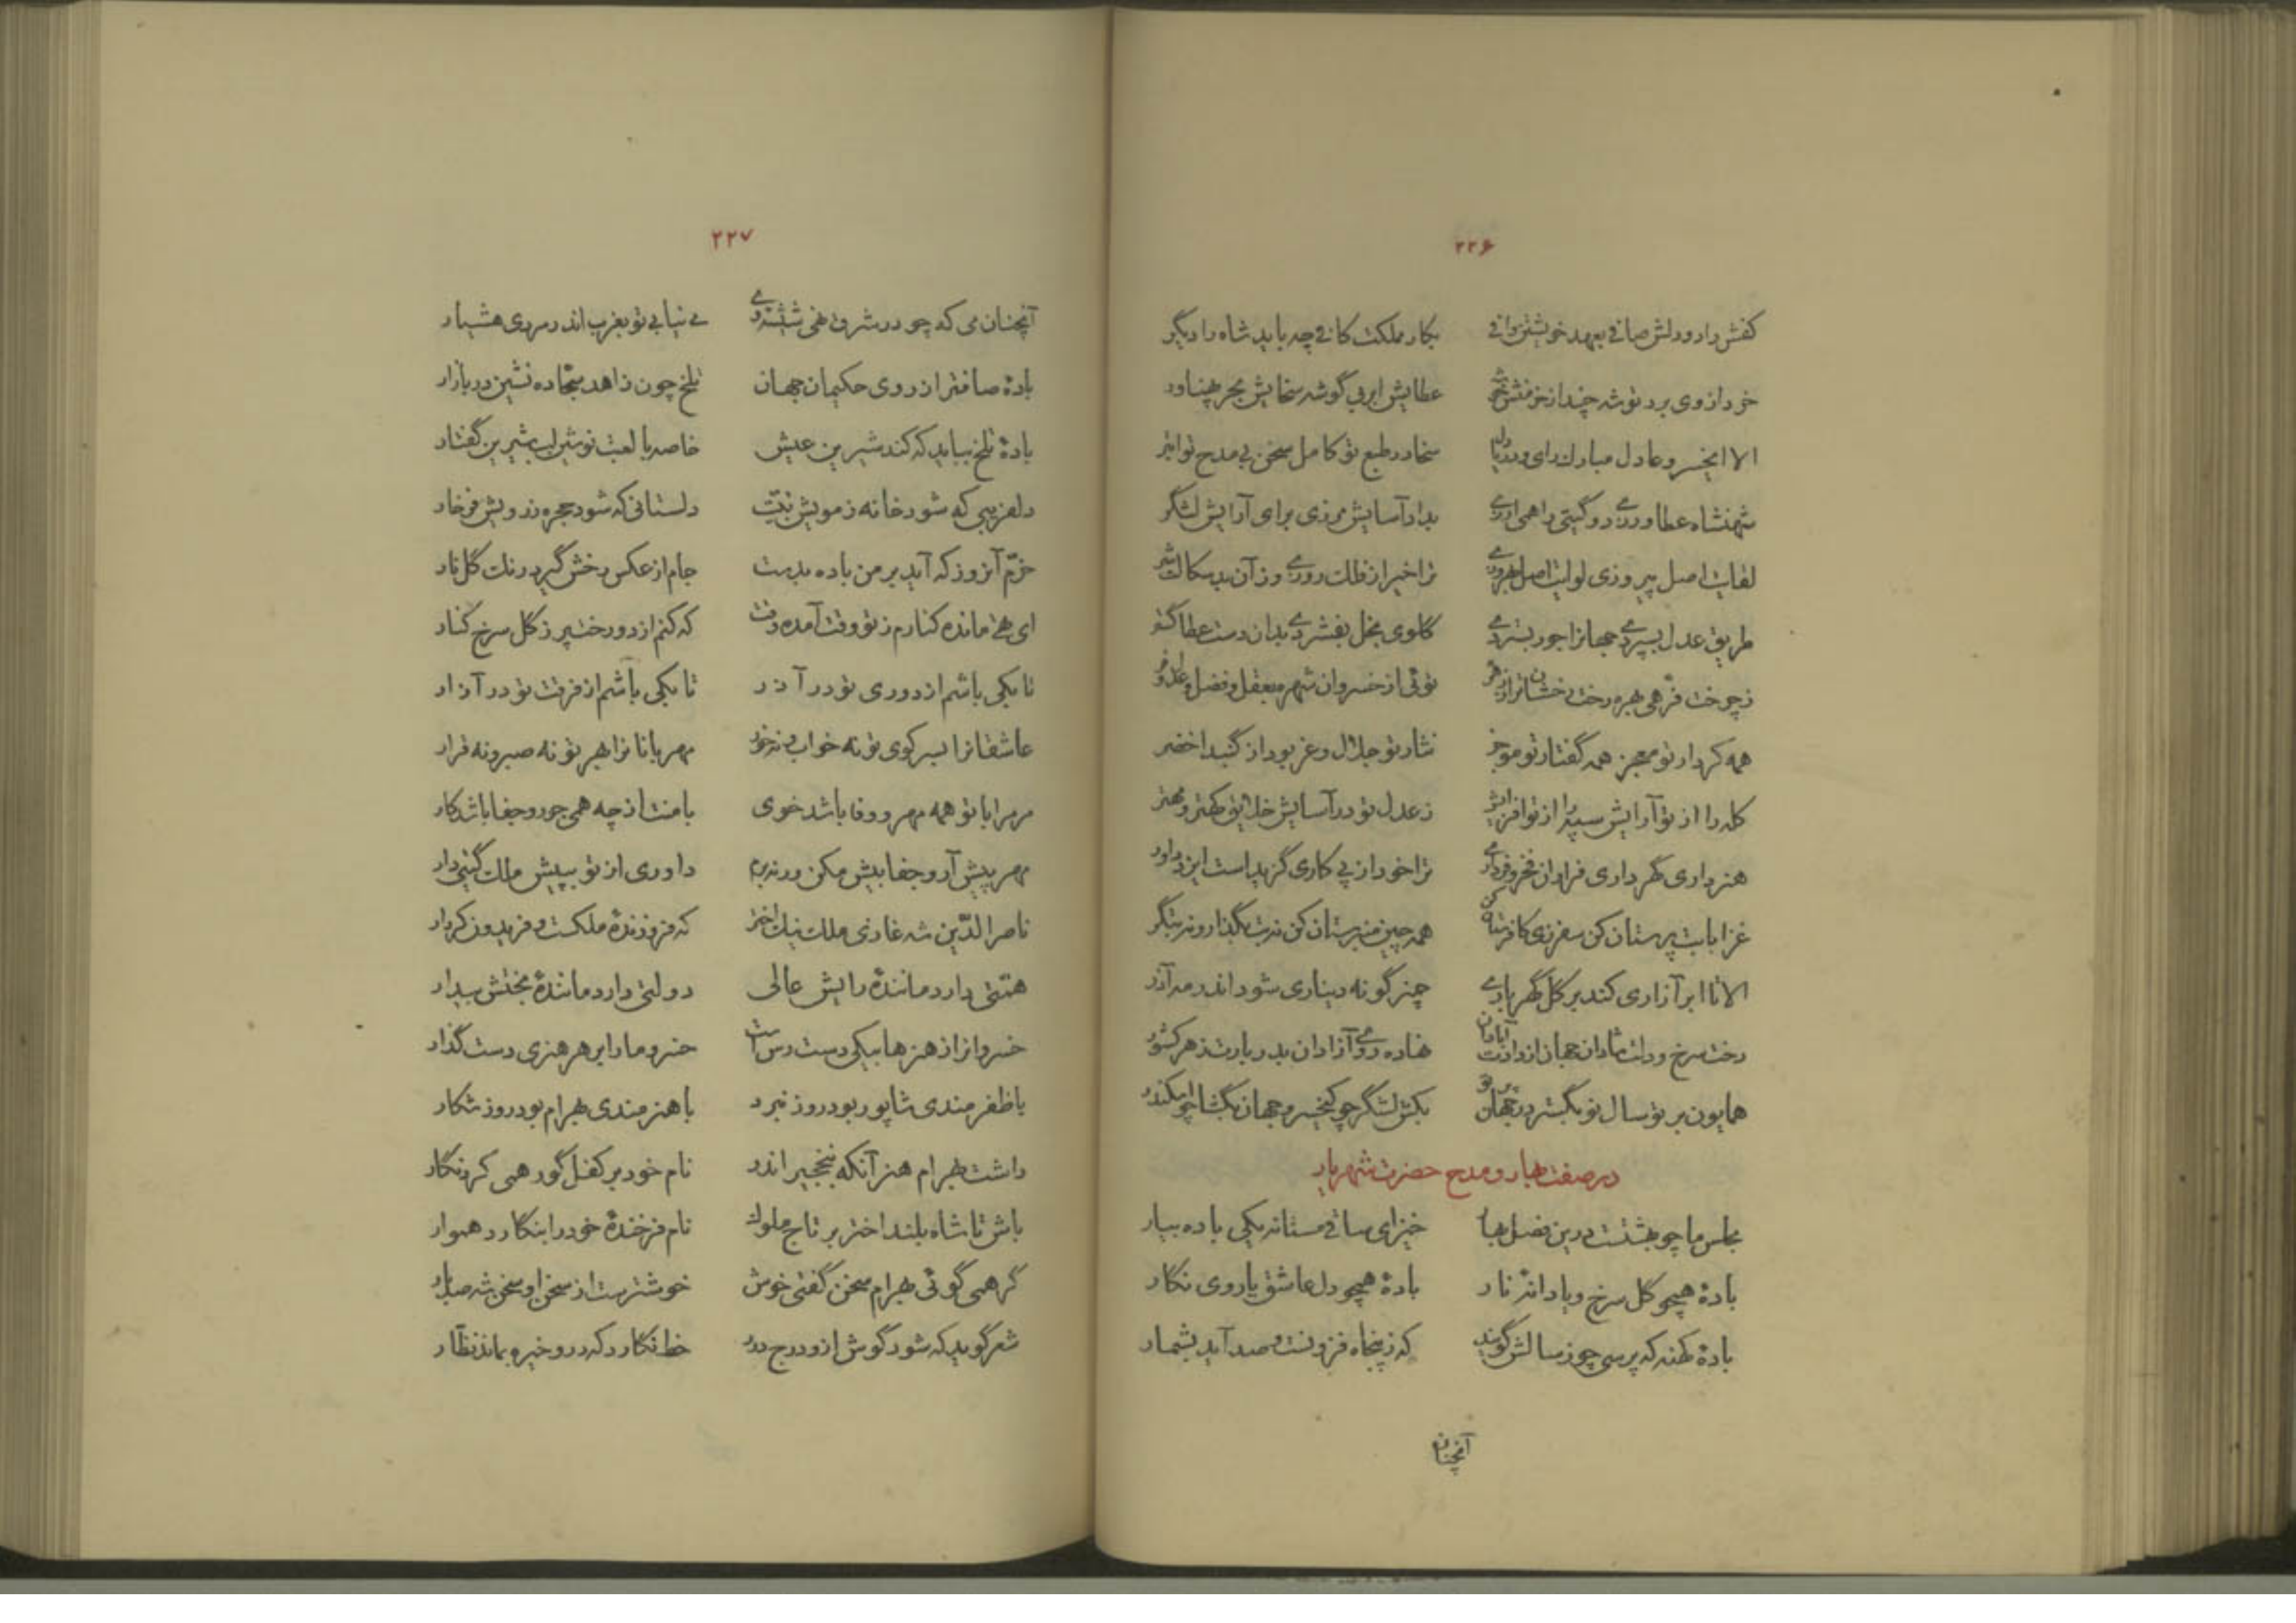 ۲۲۶
کفش رادو دلش صافی بعهد خویشتن وافی بکار مملکت کافی چه باید شاه را دیگر
خرد از وی برد توشه چند از خرمنش خوشه عطایش ابر بی گوشه سخایش بحر پهناور
الا ایخسرو عادل مبارک رای و دریا دل سخا در طبع تو کامل سخن بی مدح تو ابتر
شهنشاه عطا ورزی دو گیتی را همی ارزی بداد آسایش مرزی برای آرایش لشگر
لقایت اصل پیروزی لوایت اصل بهروزی ترا خیر از فلک روزی وز آن بدسگالت شر
طریق عدل بسپردی جهانرا جور بستردی گلوی بخل بفشردی بدان دست عطا گستر
ز چرخت فرهی بهره رخت رخشانتر از زهره توئی از خسروان شهره بعقل و فضل و عدل و فر
همه کردار تو معجز همه گفتار تو موجز نثار تو جلال و عز بود از گنبد اخضر
کله را از تو آرایش سپه را از تو افزایش ز عدل تو در آسایش خلایق کهتر و مهتر
هنر داری گهر داری فراوان فخر و فر داری ترا خود از پی کاری گزید است ایزد داور
غزا با بت پرستان کن سفر زی کافرستان کن همه چین منبرستان کن نه بت بگذار و نه بتگر
الا تا ابر آزاری کند بر گل گهرباری چمن گونه دیناری شود اندر مه آذر
رخت سرخ و دلت شادان جهان از دادت آبادان نهاده روی آزادان بدربارت ز هر کشور
همایون بر تو سال نو بگستر در جهان پرتو بکش لشگر چو کیخسرو جهان بگشا چو اسکندر
در صفت بهار و مدح حضرت شهریار
مجلس ما چو بهشتست درین فصل بهار خیز ای ساقی مستانه یکی باده بیار
بادهٔ همچو گل سرخ و یا دانهٔ نار بادهٔ همچو دل عاشق یا روی نگار
بادهٔ کهنه که پرسی چو ز سالش گویند که ز پنجاه فزونست و صد آید بشمار
آنچنان
۲۲۷
آنچنان می که چو در شرق خمی شنوی بی نیابی تو بغرب اندر مردی هشیار
بادهٔ صافتر از روی حکیمان جهان تلخ چون زاهد سجّاده نشین در بازار
بادهٔ تلخ بباید که کند شیرین عیش خاصه با لعبت نوشین لب شیرین گفتار
دلفریبی که شود خانه ز مویش تبّت دلستانی که شود حجره ز رویش فرخار
خرّم آنروز که آید بر من باده بدست جام از عکس رخش گیرد رنگ گلنار
ای تهی مانده کنارم ز تو وقت آمده وقت که کنم از دو رخت پر ز گل سرخ کنار
تا بکی باشم از دوری تو در آذر تا بکی باشم از فرقت تو در آزار
عاشقانرا بسر کوی تو نه خواب و نه خور مهربانانرا بهر تو نه صبر و نه قرار
مر مرا با تو همه مهر و وفا باشد خوی با منت از چه همی جور و جفا باشد کار
مهر پیش آر و جفا بیش مکن ورنه برم داوری از تو بپیش ملک گیتی دار
ناصر الدّین شه غازی ملک نیک اختر که فروزندهٔ ملکست و فریدون کردار
همّتی دارد مانندهٔ رایش عالی دولتی دارد مانندهٔ بختش بیدار
خسروانرا ز هنرها بیکی دست رس است خسرو ما را بر هر هنری دست گذار
با ظفرمندی شاپور بود روز نبرد با هنرمندی بهرام بود روز شکار
داشت بهرام هنر آنکه بنخجیر اندر نام خود بر کفل گور همی کرد نگار
باش تا شاه بلند اختر بر تاج ملوک نام فرخندهٔ خود را بنگارد هموار
گر همی گوئی بهرام سخن گفتی خوش خوشترست از سخن او سخن شه صد بار
شعر گوید که شود گوش ازو درج درر خط نگارد که درو خیره بماند نظّار